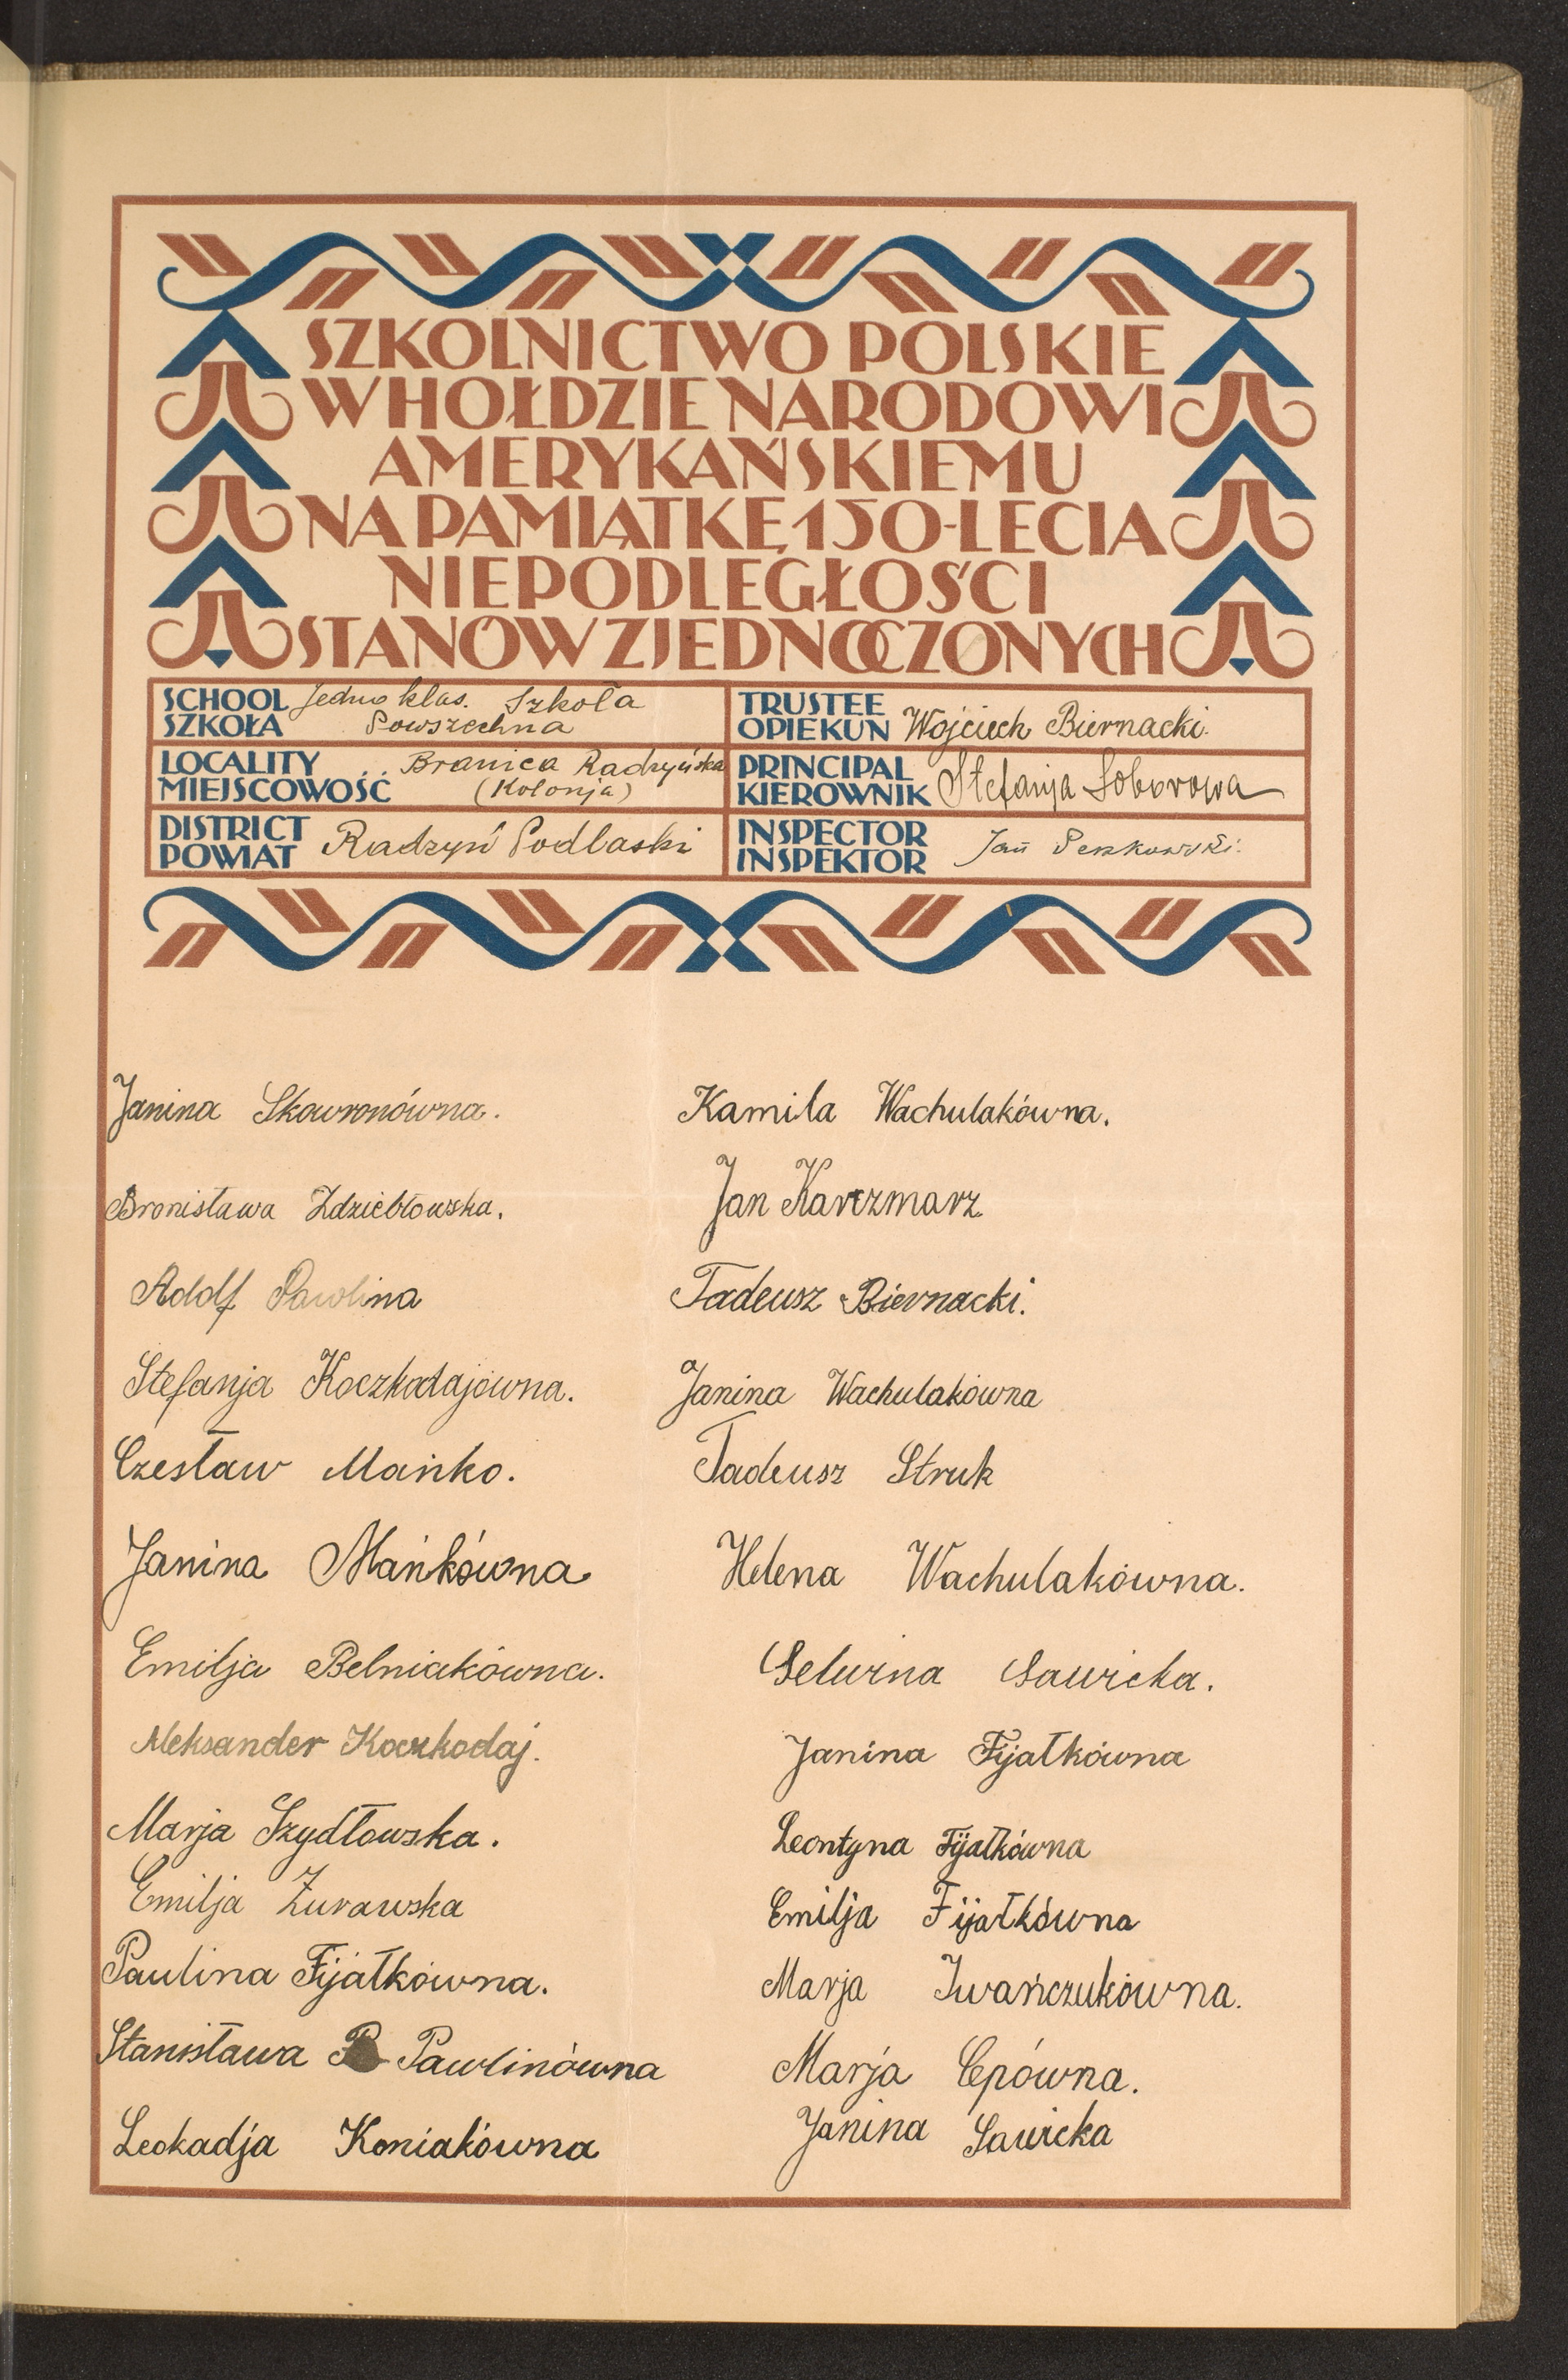 SZKOLNICTWO POLSKIE
W HOŁDZIE NARODOWI
AMERYKAŃSKIEMU
NA PAMIĄTKĘ 150-LECIA
NIEPODLEGŁOŚCI
STANÓW ZJEDNOCZONYCH
SCHOOL
SZKOŁA
Jedno klas. Szkoła
Powszechna
TRUSTEE
OPIEKUN
Wojciech Biernacki.
LOCALITY
MIEJSCOWOŚĆ
Branica Radzyńska
(Kolonja)
PRINCIPAL
KIEROWNIK
Stefanja Soborowa
DISTRICT
POWIAT
Radzyń Podlaski
INSPECTOR
INSPEKTOR
Jan
Janina Skowronówna.
Bronisława Zdziebłowska.
Adolf Pawlina
Stefanja Koczkodajówna.
Czesław Mańko.
Janina Mańkówna
Emilja Belniakówna.
Aleksander Koczkodaj.
Marja Szydłowska.
Emilja Żurawska
Paulina Fijałkówna.
Stanisława P Pawlinówna
Leokadja Koniakówna
Kamila Wachulakówna.
Jan Karczmarz
Tadeusz Biernacki.
Janina Wachulakówna
Tadeusz Struk
Helena Wachulakówna.
Selwina Sawicka.
Janina Fijałkówna
Leontyna Fijałkówna
Emilja Fijałkówna
Marja Iwańczukówna.
Marja Cepówna.
Janina Sawicka